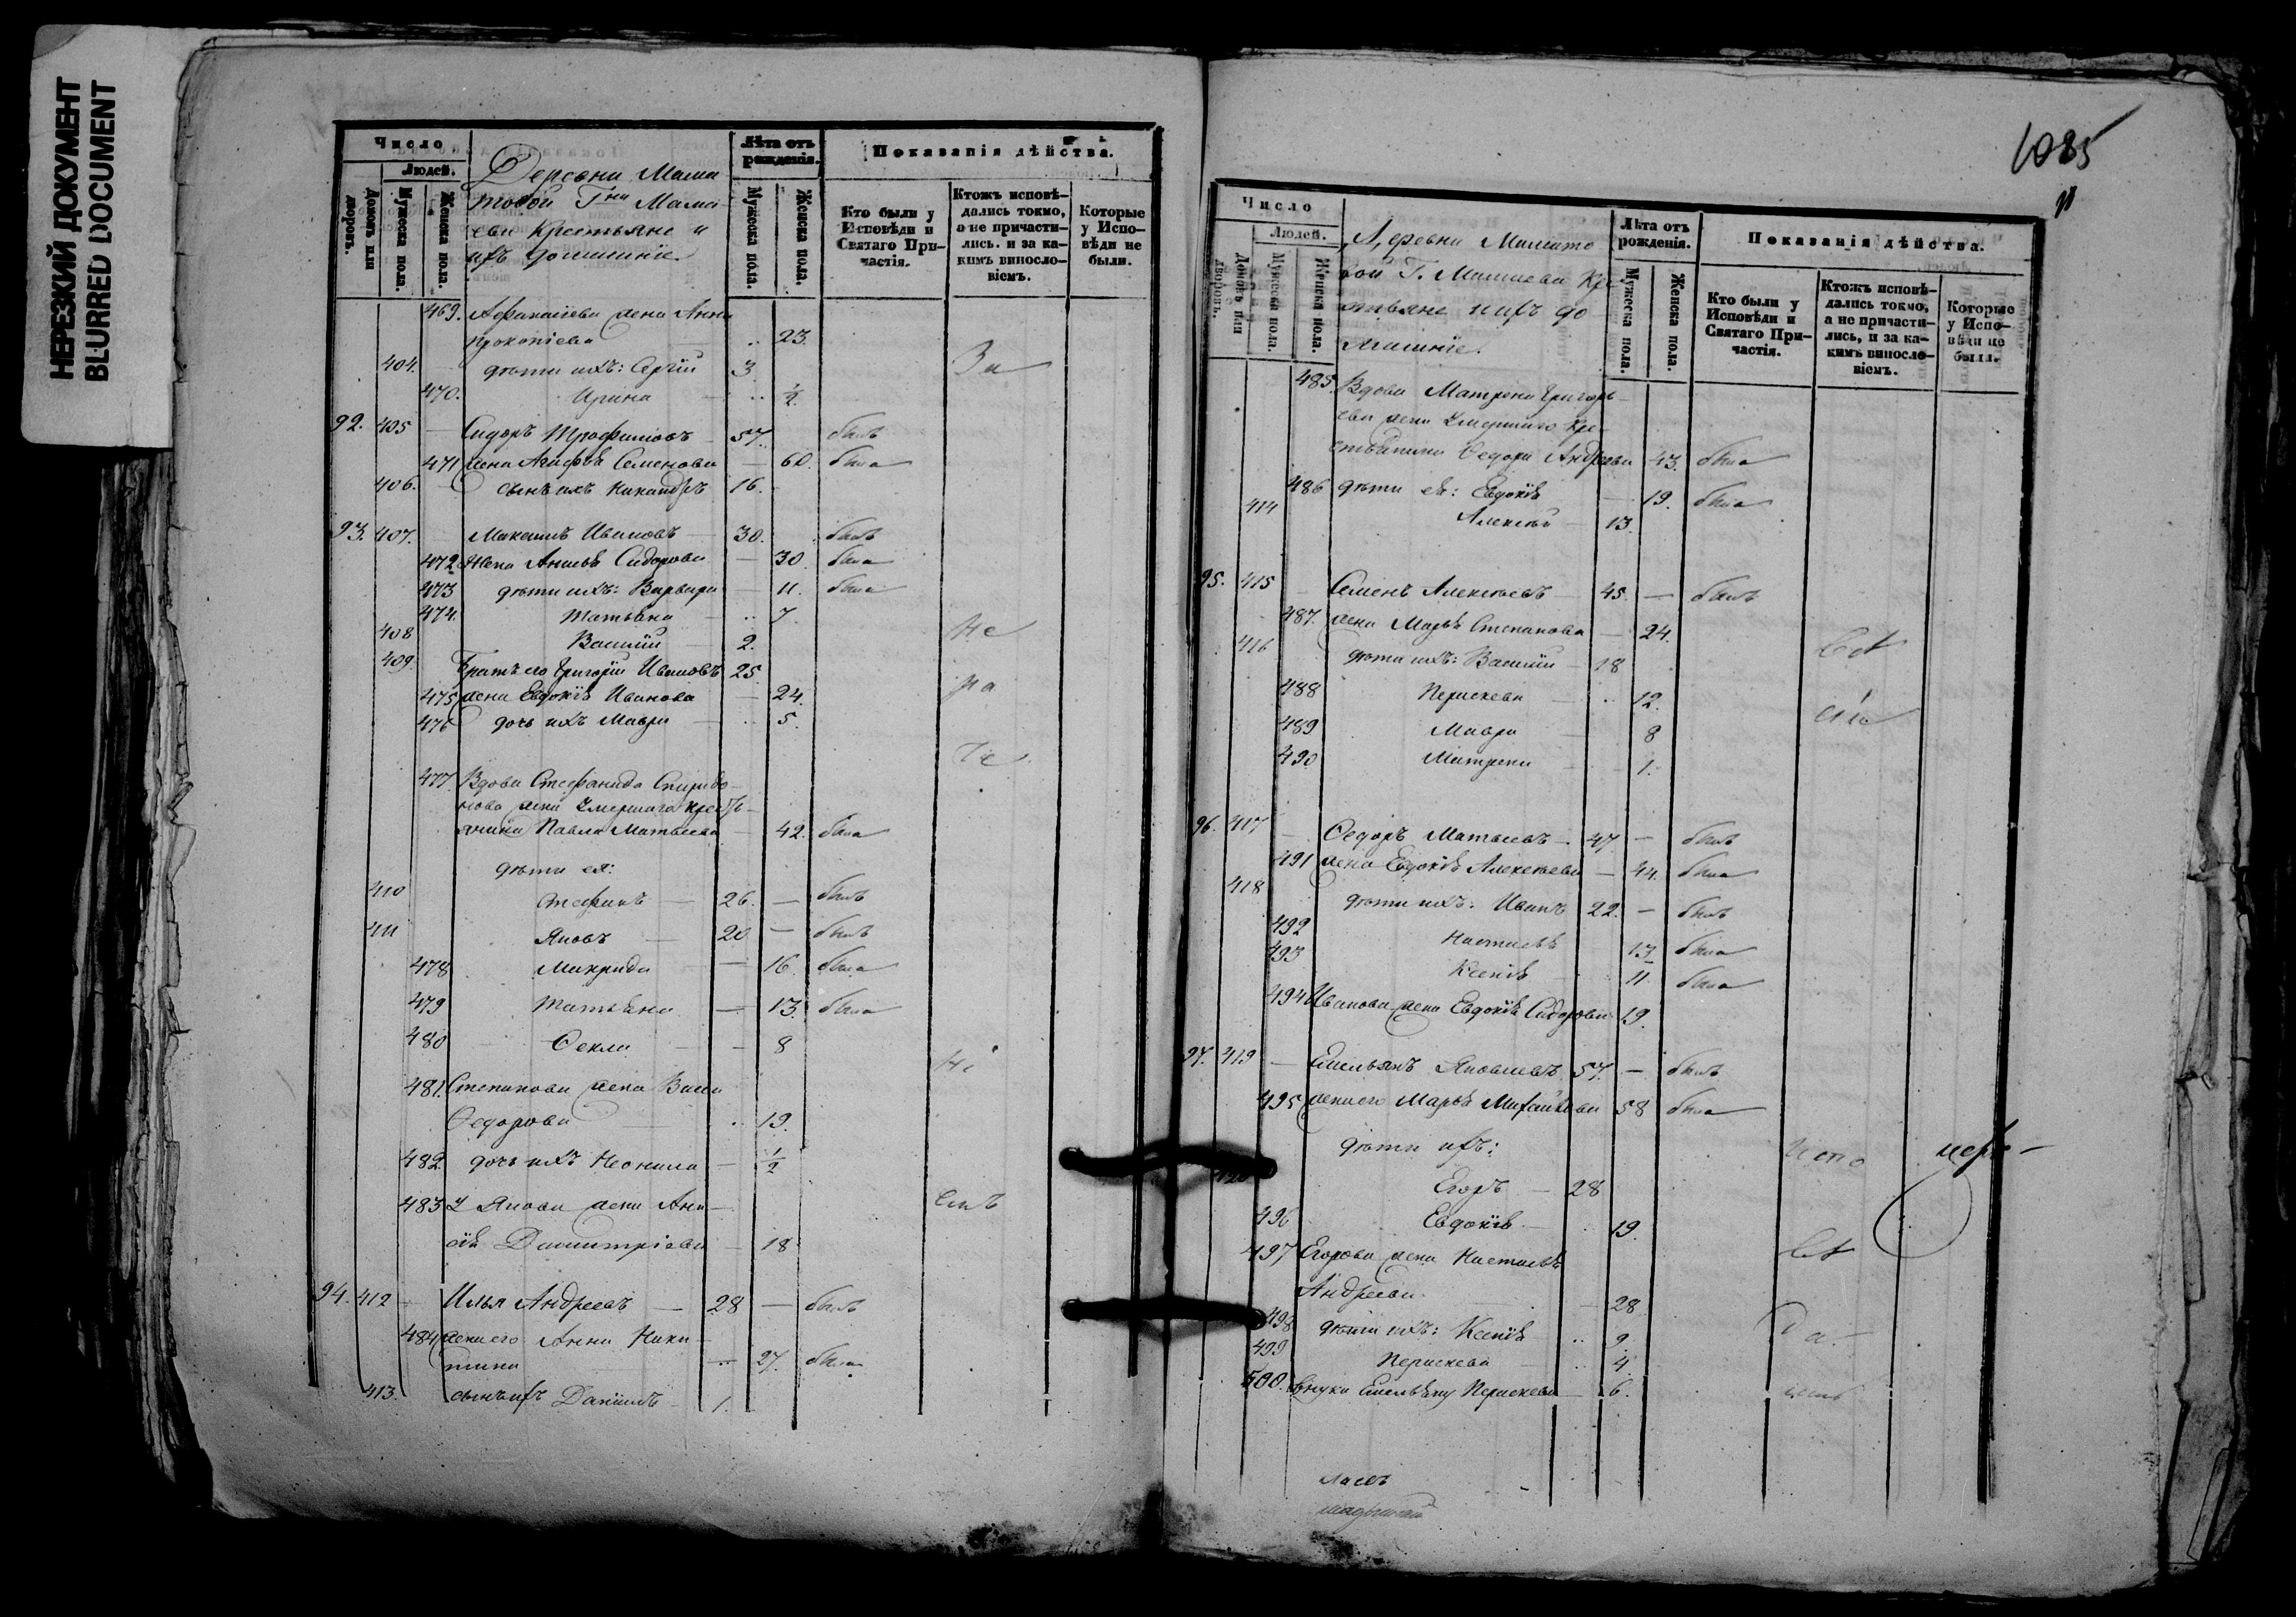 НЕРЕЗКИЙ ДОКУМЕНТ
BLURRED DOCUMENT
Число
Людей.
Домовъ или дворовъ.
Мужеска пола.
Женска пола.
Деревни Мама
товой Гжи Мама
евы Крестьяне и
ихъ домашніе
Лѣта отъ рожденія.
Мужеска пола.
Женска пола.
Показанія дѣйства.
Кто были у Исповѣди и Святаго При-частія.
Ктожъ исповѣ-дались токмо, а не причасти-лись. и за ка-кимъ винослo-віемъ.
Которые у Испо-вѣди не были.
469. Афанасіева жена Анна
Прокопіева 23.
404. дѣти ихъ: Сергій 3 За
470. Ирина ½
92. 405 Сидоръ Трофимовъ 57. былъ
471 жена Агафья Семенова 60. была
406. сынъ ихъ Никандръ 16.
93. 407. Максимъ Ивановъ 30. былъ
472 Жена Анисья Сидорова 30. была
473 дѣти ихъ: Варвара 11. была
474. Татьяна 7.
408 Василій 2. Не
409. Братъ его Григорій Ивановъ 25
475 жена Евдокія Иванова 24. ра
476 дочь ихъ Мавра 5.
477 Вдова Стефанида Спиридо-
нова жена Умершаго Кресть-
янина Павла Матвеева 42. была
дѣти ея:
410 Стефанъ 26. былъ
411 Яковъ 20 былъ
478 Макрида 16. была
479 Татьяна 13. была
480 Фекла 8
481. Степанова жена Васса
Федорова 19.
482. дочь ихъ Неонила ½
483 У Якова жена Ани-
сія Димитріева 18
94. 412 Илья Андреевъ 28 былъ
484 жена его Анна Ники-
тина 27. была
413. сынъ ихъ Даніилъ 1.
1085
Число
Людей.
Домовъ или дворовъ.
Мужеска пола.
Женска пола.
Деревни Мамато
вой Г. Мамаевы Кре
стьяне и ихъ до
машніе.
Лѣта отъ рожденія.
Мужеска пола.
Женска пола.
Показанія дѣйства.
Кто были у Исповѣди и Святаго При-частія.
Ктожъ исповѣ-дались токмо, а не причасти-лись, и за ка-кимъ винослo-віемъ.
Которые у Испо-вѣди не были.
485. Вдова Матрена Григорь-
ева жена Умершаго Кре-
стьянина Федора Андреева 43. была
486 дѣти ея: Евдокія 19. была
414 Алексѣй 13.
95. 415 Семенъ Алексѣевъ 45. былъ
487. жена Марья Степанова 24.
416 дѣти ихъ: Василій 18
488 Параскева 12.
489 Мавра 8
490 Матрена 1.
96. 417 Федоръ Матвеевъ 47. былъ
491 жена Евдокія Алексѣева 44. была
418 дѣти ихъ: Иванъ 22. былъ
492 Настасья 13 была
493 Ксенія 11 была
494 Иванова жена Евдокія Сидорова 19.
97. 419 Емельянъ Яковлевъ 57. былъ
495 жена его Марья Михайлова 58 была
дѣти ихъ: Испо
Егоръ 28
496 Евдокія 19.
497 Егорова жена Настасья
Андреева 28
498 дѣти ихъ: Ксенія 9.
499 Параскева 4
500. внука Емельяну Параскева 6.